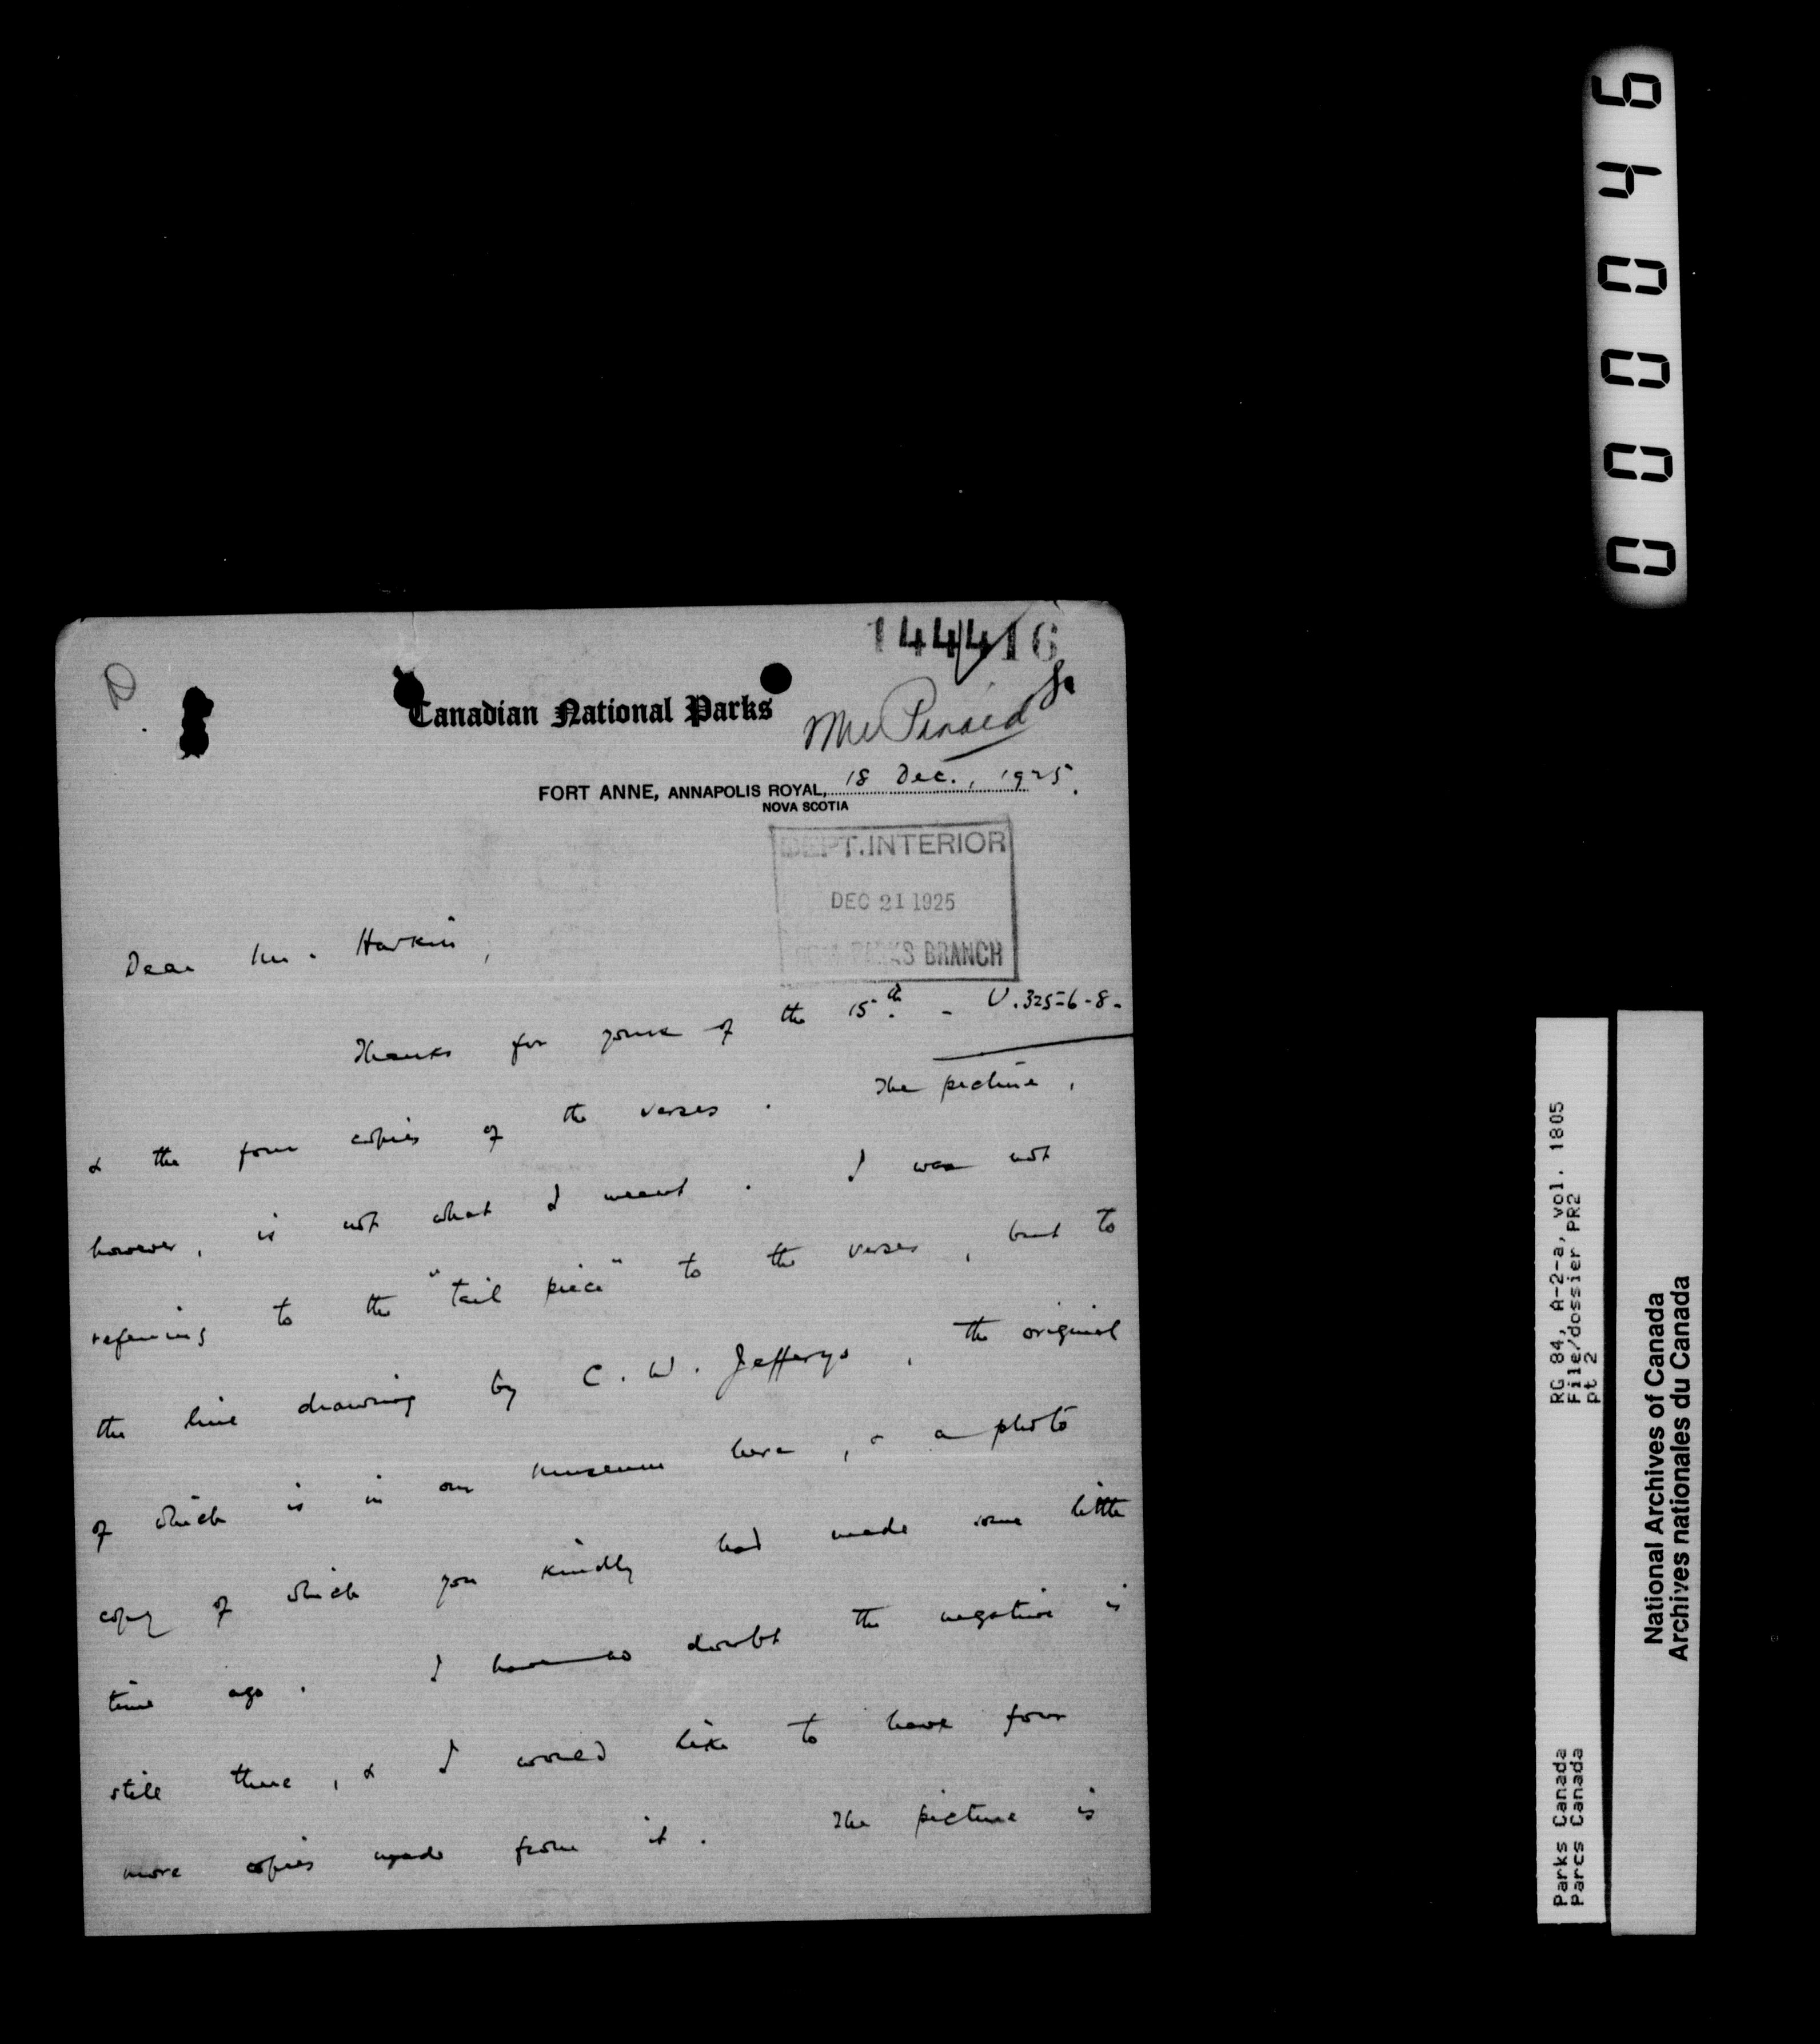 144416
Canadian National Parks
FORT ANNE, ANNAPOLIS ROYAL, 18 Dec., 1925.
NOVA SCOTIA
DEPT. INTERIOR
DEC 21 1925
PARKS BRANCH
Dear Mr. Harkin,
Thanks for yours of the 15th. - U.325-6-8-
& the four copies of the verses. The picture,
however, is not what I meant. I was not
referring to the "tail piece" to the verses, but to
the line drawing by C. W. Jefferys, the original
of which is in our museum here, & a photo
copy of which you kindly had made some little
time ago. I have no doubt the negative is
still there, & I would like to have four
more copies made from it. The picture is
000046
RG 84, A-2-a, vol. 1805
File/dossier PR2
pt 2
Parks Canada
Parcs Canada
National Archives of Canada
Archives nationales du Canada